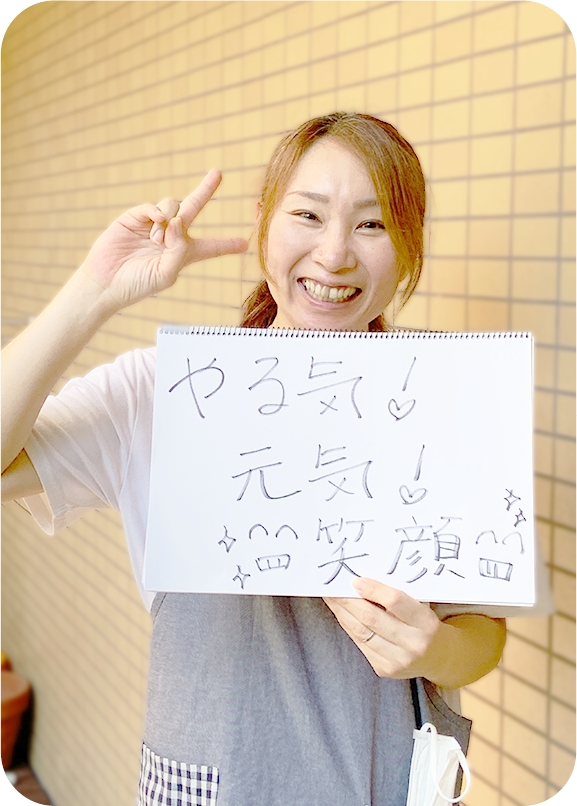 やる気!
元気!
笑顔